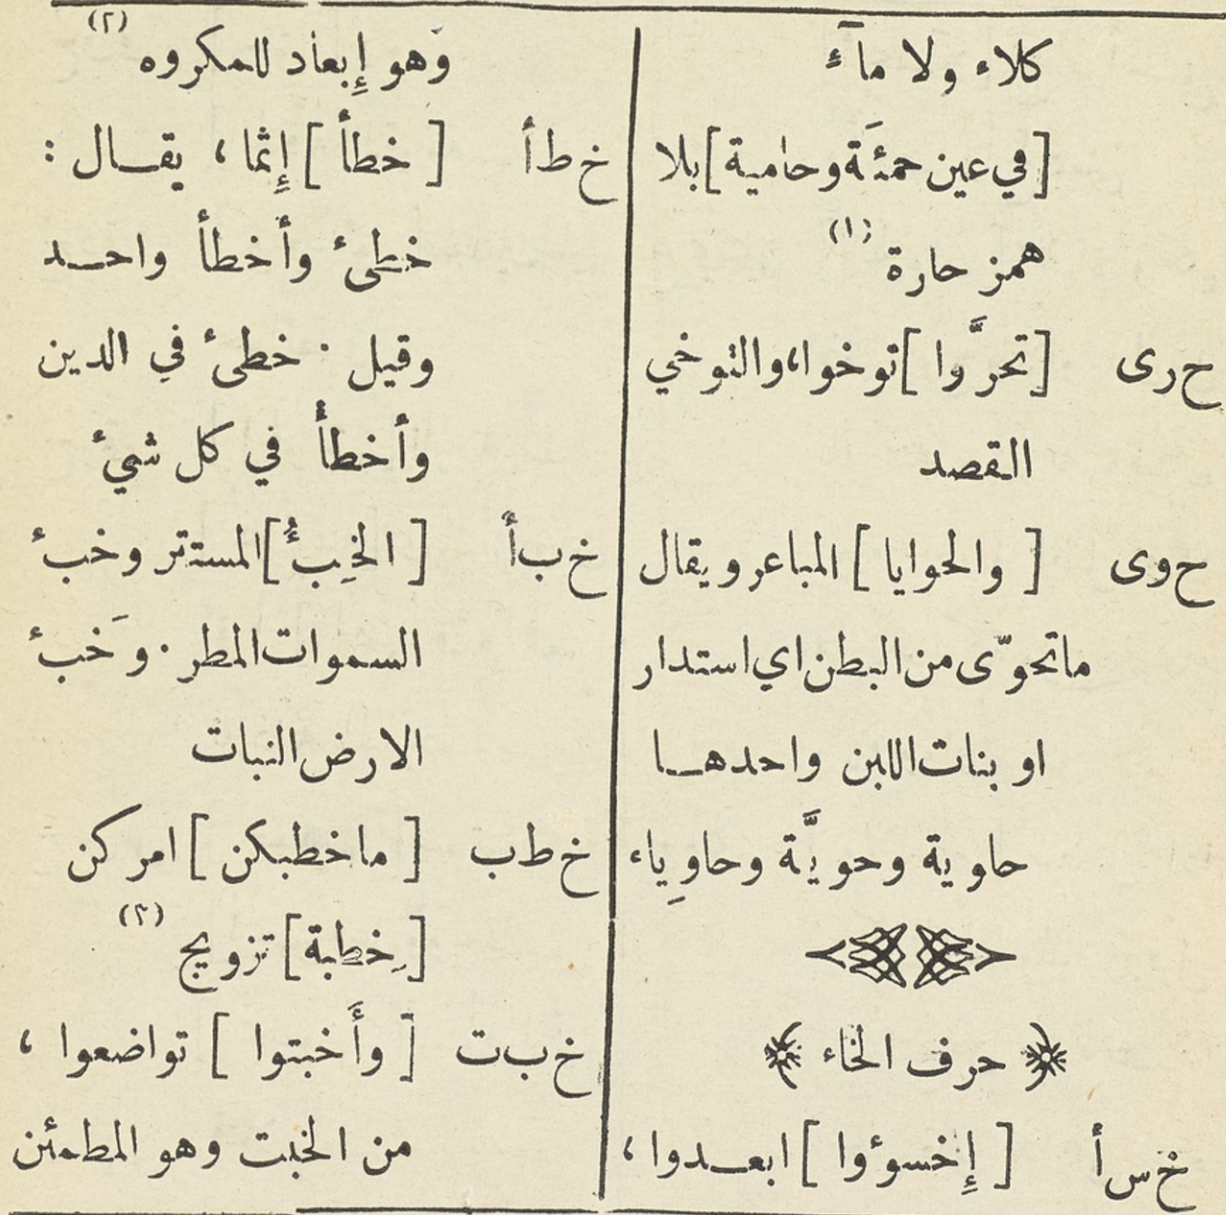 كلاء ولا مآء
[في عين حمئَة وحامية] بلا
همز حارة (١)
ح ر ى [تحرَّوا] توخوا، والتوخي
القصد
ح و ى [والحوايا] المباعر ويقال
ماتحوّى من البطن اي استدار
او بنات اللبن واحدهــا
حاوية وحويَّة وحاوِياء
﴿ حرف الخاء ﴾
خ س أ [إِخسوؤا] ابعــدوا،
وَهو إِبعاد للمكروه (٢)
خ ط أ [خطأ] إِثما، يقــال :
خطئ وأخطأ واحــد
وقيل · خطئ في الدين
وأخطأ في كل شيء
خ ب أ [الخِبءُ] المستتر وخبء
السموات المطر · وخَبء
الارض النبات
خ ط ب [ماخطبكن] امركن
[خِطبة] تزويج (٢)
خ ب ت [وأَخبتوا] تواضعوا،
من الخبت وهو المطمئن